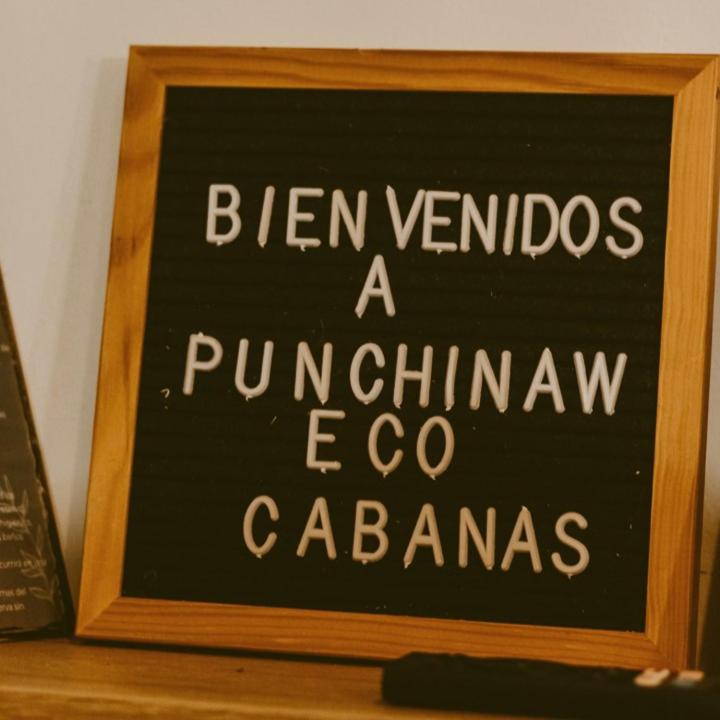 BIENVENIDOS
A
PUNCHINAW
ECO
CABANAS